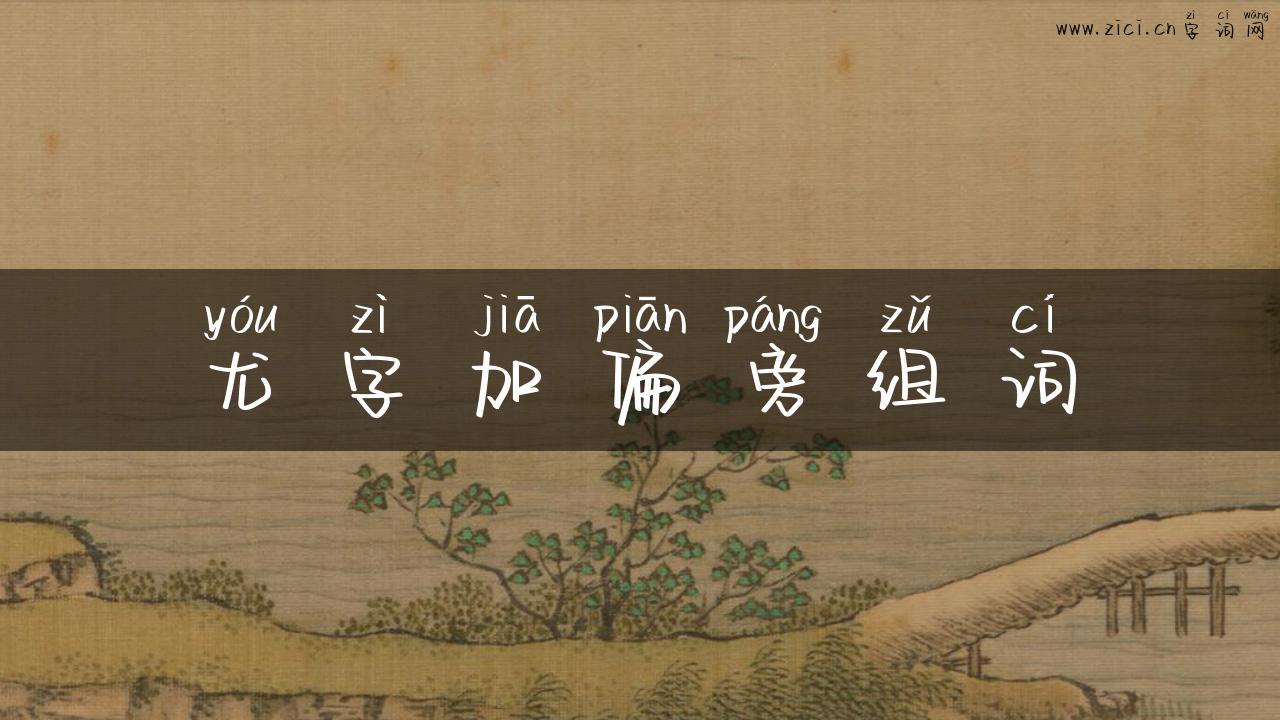 zì cí wǎng
www.zici.cn 字 词 网
yóu zì jiā piān páng zǔ cí
尤 字 加 偏 旁 组 词